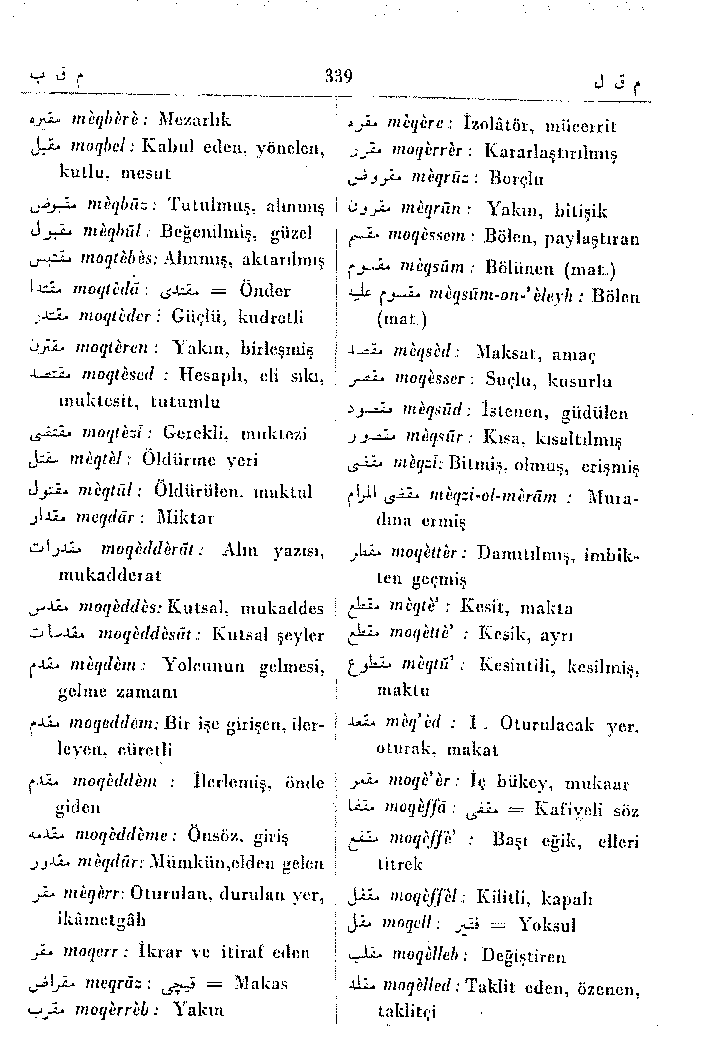 م ق ب
339
م ق ل
مقبره mèqbèrè : Mezarlık
مقبل moqbel : Kabul eden, yönelen,
kutlu, mesut
مقبوض mèqbûz : Tutulmuş, alınmış
مقبول mèqbûl : Beğenilmiş, güzel
مقتبس moqtèbès: Alınmış, aktarılmış
مقتدا moqtèdâ : مقتدی = Önder
مقتدر moqtèder : Güçlü, kudretli
مقترن moqtèren : Yakın, birleşmiş
مقتصد moqtèsed : Hesaplı, eli sıkı,
muktesit, tutumlu
مقتضی moqtèzî : Gerekli, muktezi
مقتل mèqtèl : Öldürme yeri
مقتول mèqtûl : Öldürülen, maktul
مقدار meqdâr : Miktar
مقدرات moqèdderât : Alın yazısı,
mukadderat
مقدس moqèddès: Kutsal, mukaddes
مقدسات moqèddèsât : Kutsal şeyler
مقدم mèqdèm : Yolcunun gelmesi,
gelme zamanı
مقدم moqeddem: Bir işe girişen, iler-
leyen, cüretli
مقدم moqèddèm : İlerlemiş, önde
giden
مقدمه moqèddème : Önsöz, giriş
مقدور mèqdûr: Mümkün,elden gelen
مقر mèqèrr: Oturulan, durulan yer,
ikâmetgâh
مقر moqerr : İkrar ve itiraf eden
مقراض meqrâz : قیچی = Makas
مقرب moqèrrèb : Yakın
مقره mèqère : İzolâtör, mücerrit
مقرر moqèrrèr : Kararlaştırılmış
مقروض mèqrûz : Borçlu
مقرون mèqrûn : Yakın, bitişik
مقسم moqèssem : Bölen, paylaştıran
مقسوم mèqsûm : Bölünen (mat.)
مقسوم علیه mèqsûm-on-'èleyh : Bölen
(mat.)
مقصد mèqsèd : Maksat, amaç
مقصر moqèsser : Suçlu, kusurlu
مقصود mèqsûd : İstenen, güdülen
مقصور mèqsûr : Kısa, kısaltılmış
مقضی mèqzî: Bitmiş, olmuş, erişmiş
مقضی المرام mèqzi-ol-mèrâm : Mura-
dına ermiş
مقطر moqèttèr : Damıtılmış, imbik-
ten geçmiş
مقطع mèqtè' : Kesit, makta
مقطع moqèttè' : Kesik, ayrı
مقطوع mèqtû' : Kesintili, kesilmiş,
maktu
مقعد mèq'èd : 1 . Oturulacak yer,
oturak, makat
مقعر moqè'èr : İç bükey, mukaar
مقفا moqèffâ : مقفی = Kafiyeli söz
مقفع moqèffè' : Başı eğik, elleri
titrek
مقفل moqèffèl : Kilitli, kapalı
مقل moqell : فقیر = Yoksul
مقلب moqèlleb : Değiştiren
مقلد moqèlled : Taklit eden, özenen,
taklitçi